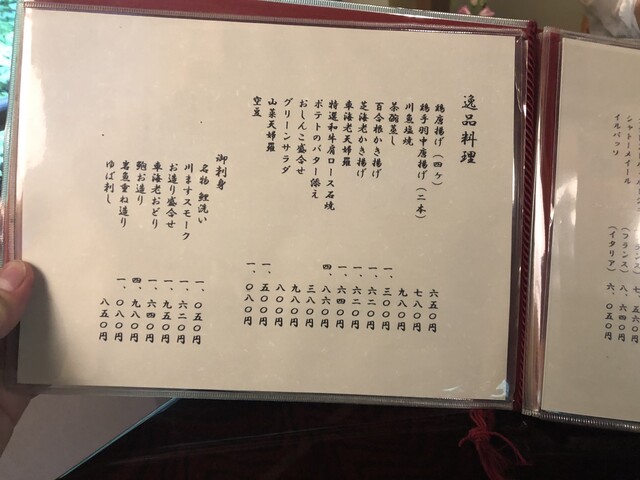 逸品料理
鶏唐揚げ（四ケ） 六五〇円
鶏手羽中唐揚げ（二本） 七八〇円
川魚塩焼 九八〇円
茶碗蒸し 一、三〇〇円
百合根かき揚げ 一、六二〇円
芝海老かき揚げ 一、六二〇円
車海老天婦羅 一、六四〇円
特選和牛肩ロース石焼 四、八六〇円
ポテトのバター添え 三八〇円
おしんこ盛合せ 九八〇円
グリーンサラダ 八〇〇円
山菜天婦羅 一、五〇〇円
空豆 一、〇八〇円
御刺身
名物 鯉洗い 一、〇五〇円
川ますスモーク 一、六二〇円
お造り盛合せ 一、九五〇円
車海老おどり 一、六四〇円
鮑お造り 四、九八〇円
岩魚重ね造り 一、〇八〇円
ゆば刺し 八五〇円
（フランス） 八、六四〇円
（イタリア） 六、〇五〇円